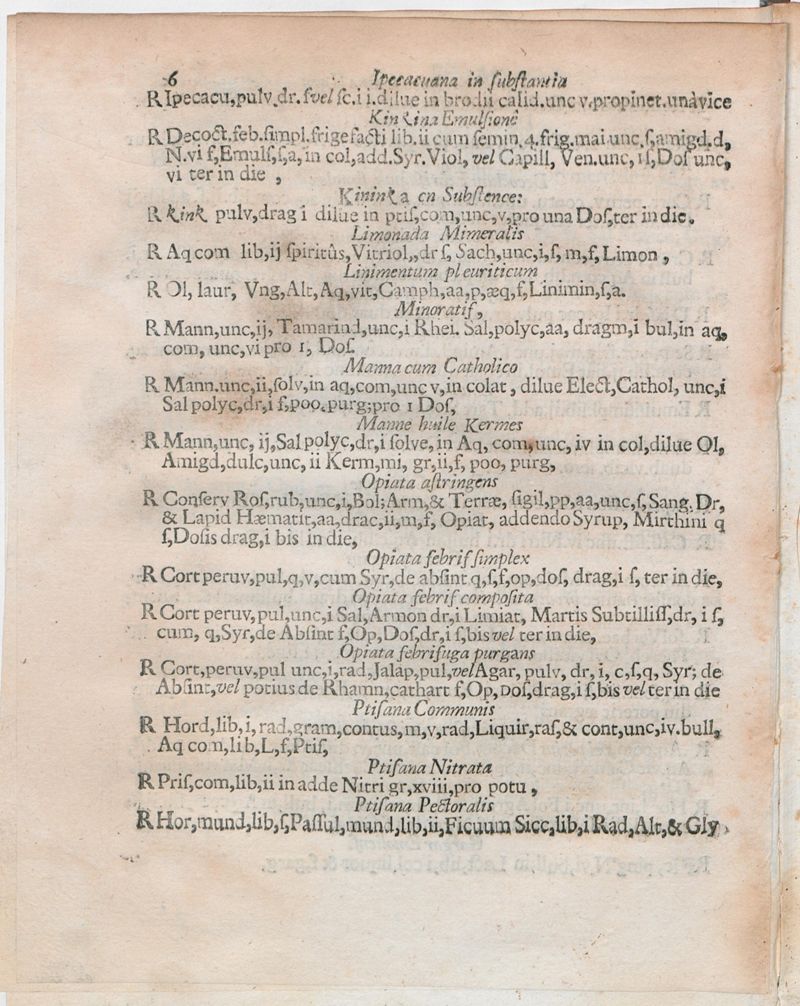 6 Ipecacuana in ſubſtantia
R Ipecacu,pulv.dr.ſvel ſc.i i.dilue in brodii calid.unc v.propinet.unâvice
Kin kina Emulſione
R Decoct.feb.ſimpl.frigefacti lib.ii cum ſemin.4.frig.mai unc.ſ,amigd.d,
N.vi ſ,Emulſ,ſ,a, in col,add.Syr.Viol, vel Capill, Ven.unc,iſ,Doſ unc,
vi ter in die ,
Kinink a en Subſtence:
R kink pulv,drag i dilue in ptiſ,com,unc,v,pro una Doſ,ter in die.
Limonada Mimeralis
R Aq com lib,ij ſpiritûs,Vitriol,,dr ſ, Sach,unc,i,ſ, m,f, Limon ,
Linimentum pleuriticum
R Ol, laur, Vng,Alt,Aq,vit,Camph,aa,p,æq,f,Linimin,ſ,a.
Minoratif,
R Mann,unc,ij, Tamarind,unc,i Rhei. Sal,polyc,aa, dragm,i bul,in aq,
com, unc,vi pro 1, Doſ.
Manna cum Catholico
R Mann.unc,ii,ſolv,in aq,com,unc v,in colat , dilue Elect,Cathol, unc,i
Sal polyc,dr,i ſ,poo.purg;pro 1 Doſ,
Manne huile Kermes
R Mann,unc, ij,Sal polyc,dr,i ſolve, in Aq, com,unc, iv in col,dilue Ol,
Amigd,dulc,unc, ii Kerm,mi, gr,ii,f, poo, purg,
Opiata aſtringens
R Conſerv Roſ,rub,unc,i,Bol;Arm,& Terræ, ſigil,pp,aa,unc,ſ,Sang. Dr,
& Lapid Hæmatit,aa,drac,ii,m,f, Opiat, addendo Syrup, Mirthini q
ſ,Doſis drag,i bis in die,
Opiata febrif ſimplex
R Cort peruv,pul,q,v,cum Syr,de abſint q,ſ,f,op,doſ, drag,i ſ, ter in die,
Opiata febrif compoſita
R Cort peruv,pul,unc,i Sal,Armon dr,i Limiat, Martis Subtilliſſ,dr, i ſ,
cum, q,Syr,de Abſint f,Op,Doſ,dr,i ſ,bis vel ter in die,
Opiata febrifuga purgans
R Cort,peruv,pul unc,i,rad,Jalap,pul,vel Agar, pulv, dr, i, c,ſ,q, Syr; de
Abſint,vel potius de Rhamn,cathart f,Op,Doſ,drag,i ſ,bis vel ter in die
Ptiſana Communis
R Hord,lib,i, rad,gram,contus,m,v,rad,Liquir,raſ,& cont,unc,iv.bull,
Aq com,lib,L,f,Ptiſ,
Ptiſana Nitrata
R Priſ,com,lib,ii in adde Nitri gr,xviii,pro potu ,
Ptiſana Pectoralis
R Hor,mund,lib,ſ,Paſſul,mund,lib,ii,Ficuum Sicc,lib,i Rad,Alt,& Gly